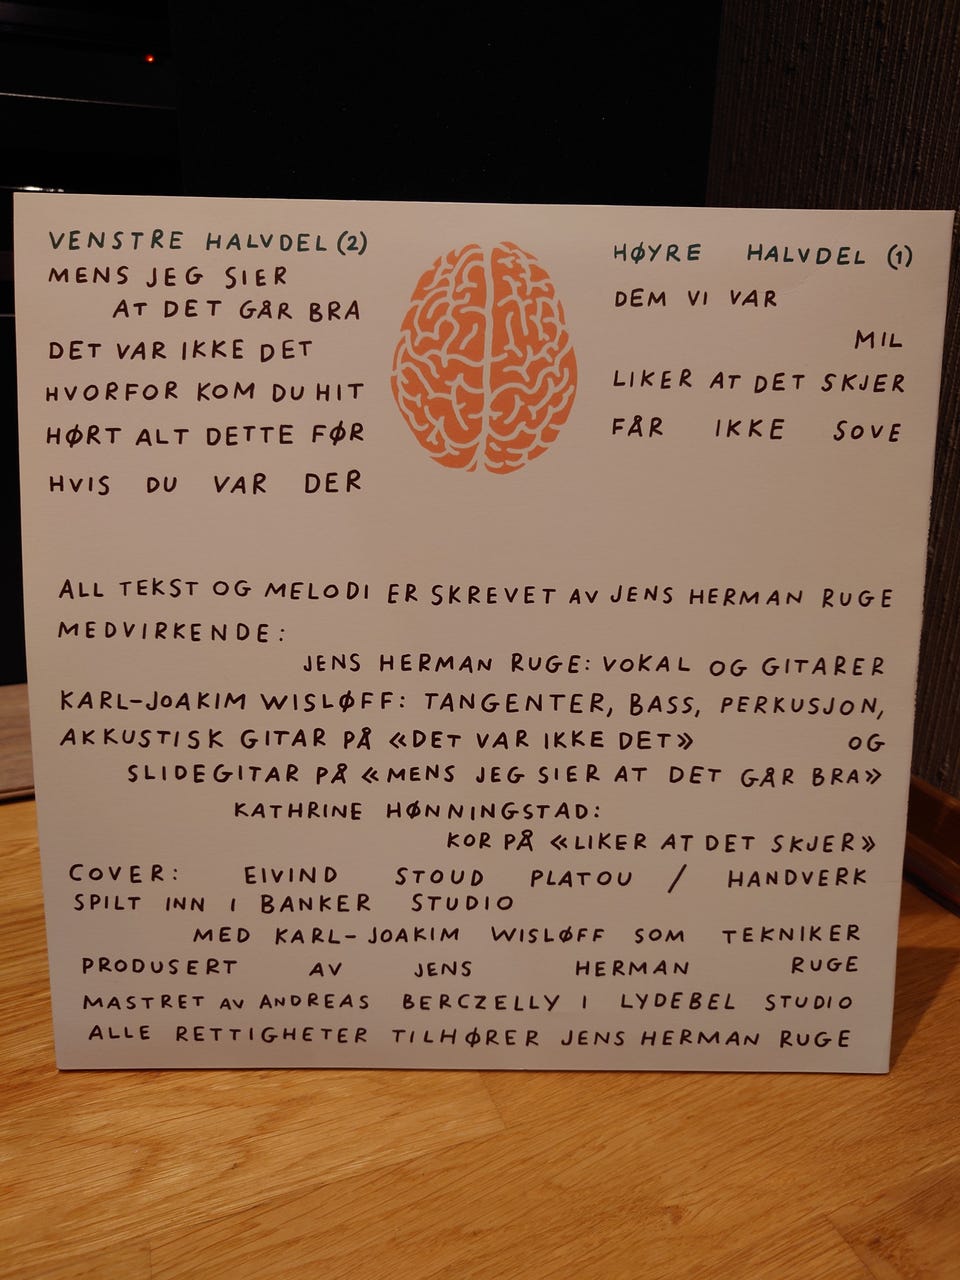 VENSTRE HALVDEL (2)
MENS JEG SIER
AT DET GÅR BRA
DET VAR IKKE DET
HVORFOR KOM DU HIT
HØRT ALT DETTE FØR
HVIS DU VAR DER
HØYRE HALVDEL (1)
DEM VI VAR
MIL
LIKER AT DET SKJER
FÅR IKKE SOVE
ALL TEKST OG MELODI ER SKREVET AV JENS HERMAN RUGE
MEDVIRKENDE:
JENS HERMAN RUGE: VOKAL OG GITARER
KARL-JOAKIM WISLØFF: TANGENTER, BASS, PERKUSJON,
AKKUSTISK GITAR PÅ «DET VAR IKKE DET» OG
SLIDEGITAR PÅ «MENS JEG SIER AT DET GÅR BRA»
KATHRINE HØNNINGSTAD:
KOR PÅ «LIKER AT DET SKJER»
COVER: EIVIND STOUD PLATOU / HANDVERK
SPILT INN I BANKER STUDIO
MED KARL-JOAKIM WISLØFF SOM TEKNIKER
PRODUSERT AV JENS HERMAN RUGE
MASTRET AV ANDREAS BERCZELLY I LYDEBEL STUDIO
ALLE RETTIGHETER TILHØRER JENS HERMAN RUGE